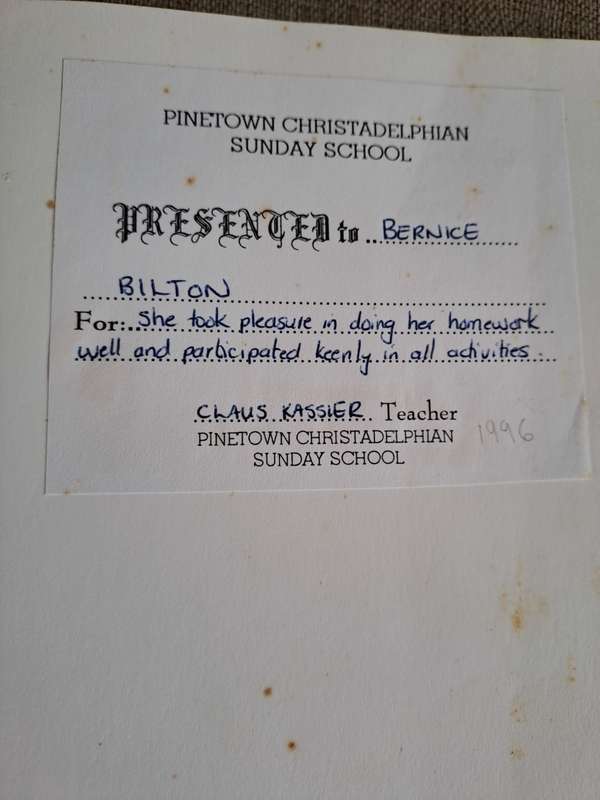 PINETOWN CHRISTADELPHIAN
SUNDAY SCHOOL
PRESENTED to ..BERNICE
BILTON
For:...She took pleasure in doing her homework
well and participated keenly in all activities.
CLAUS KASSIER. Teacher
PINETOWN CHRISTADELPHIAN 1996
SUNDAY SCHOOL